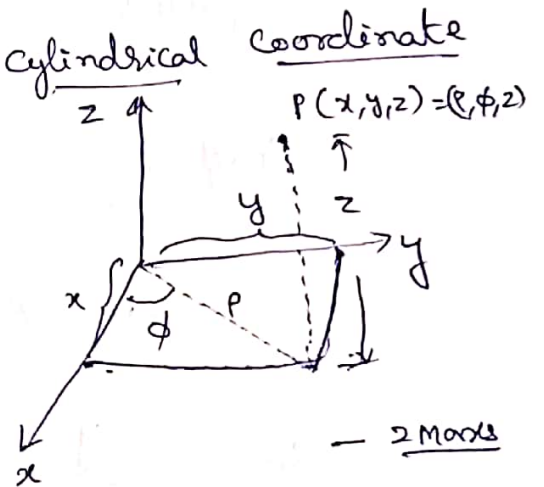 Cylindrical Coordinate
z
P(x,y,z)=(ρ,φ,z)
z
y
y
x
ρ
φ
x
— 2 Marks